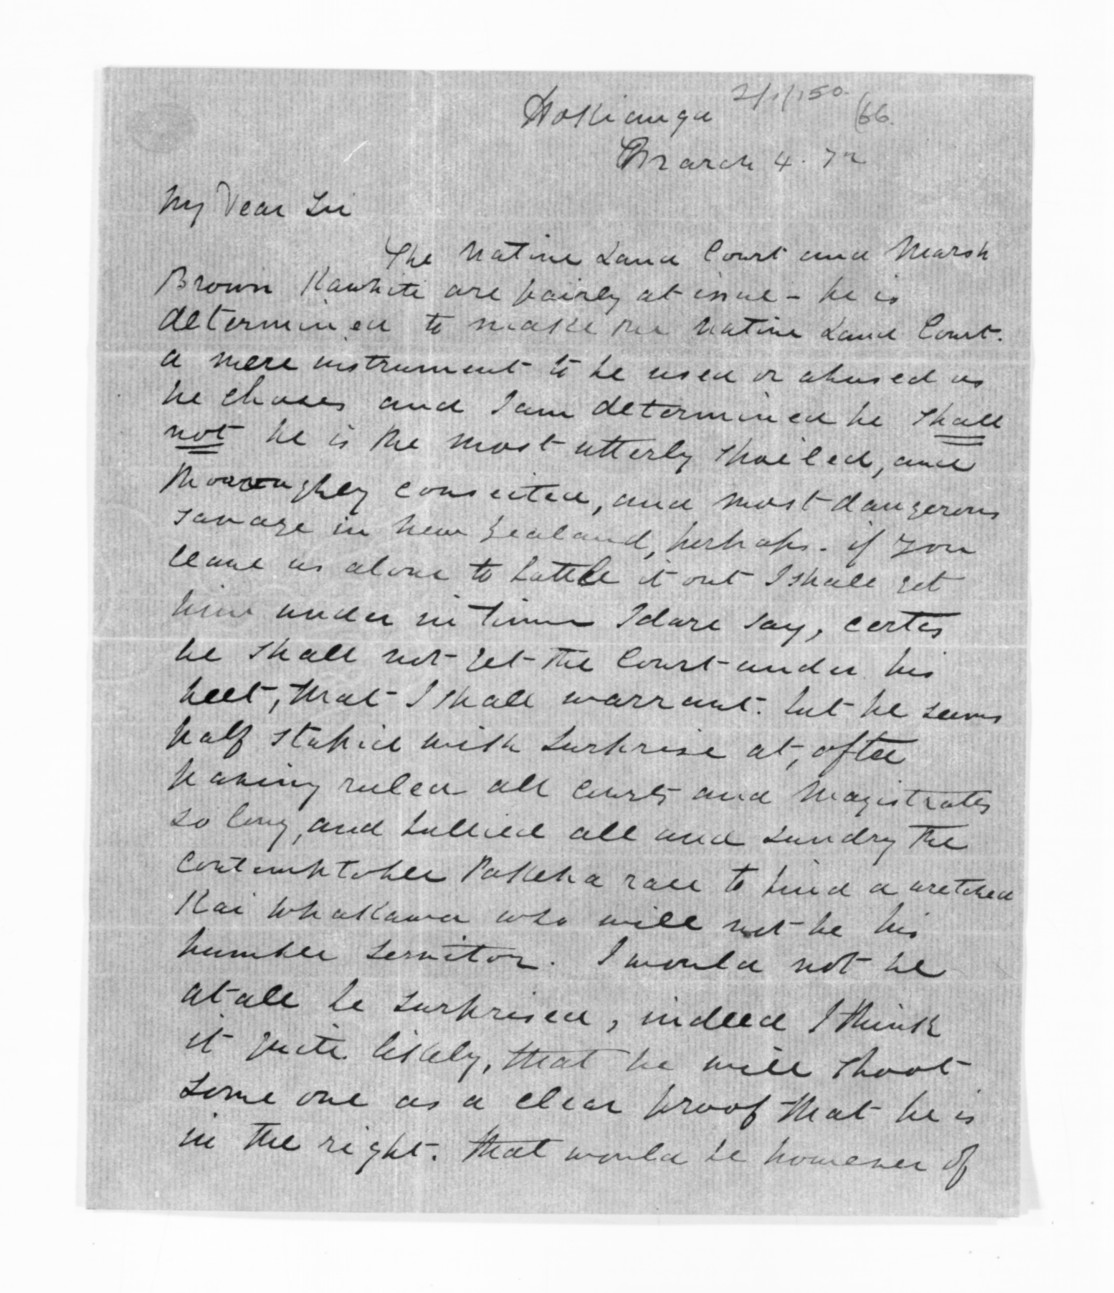 Hokianga 2/1/150 (66.
March 4. 72
My Dear Sir
The Native Land Court and Marsh
Brown Kawhiti are fairly at issue - he is
determined to make the Native Land Court.
a mere instrument to be used or abused as
he choses and I am determined he shall
not he is the most utterly spoiled, and
thoroughly conseited, and most dangerous
savage in New Zealand, perhaps. if you
leave us alone to battle it out I shall get
him under in time I dare say, certes
he shall not get the Court under his
heel, that I shall warrant. but he seems
half stupid with surprise at, after
having ruled all courts and Magistrates
so long, and bullied all and sundry the
contemptable Pakeha race to find a wretched
Kai Whakawa who will not be his
humble servitor. I would not be
at all be surprised, indeed I think
it quite likely, that he will shoot
some one as a clear proof that he is
in the right. that would be however of